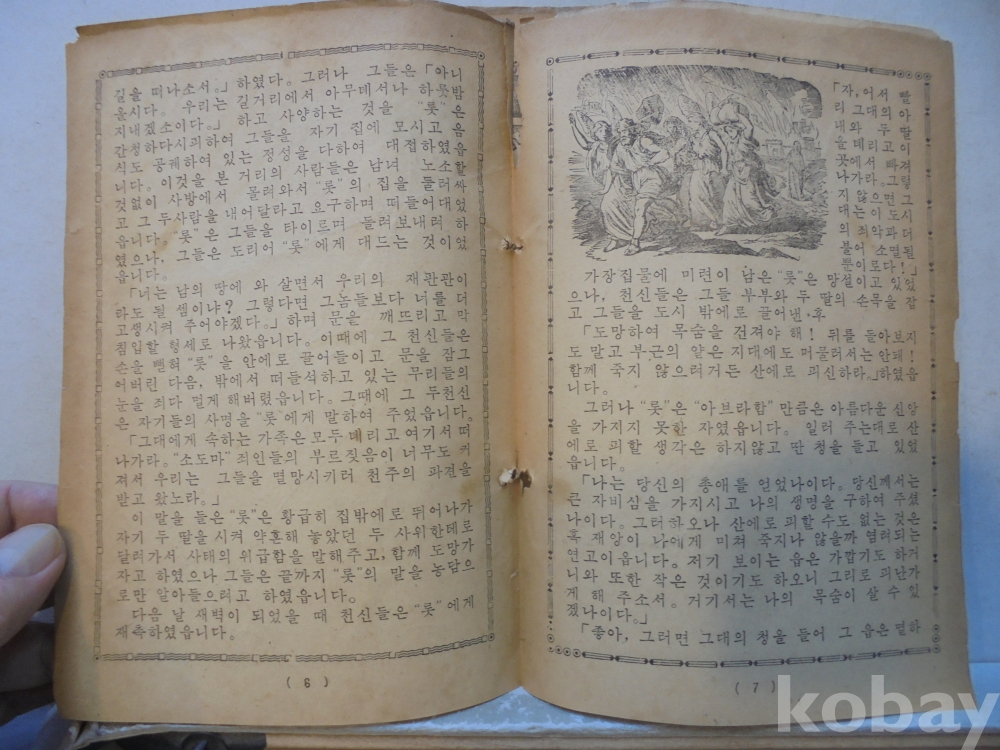 길을 떠나소서.」하였다. 그러나 그들은「아니
올시다. 우리는 길거리에서 아무데서나 하룻밤
지내겠소이다.」하고 사양하는 것을 “롯”은
간청하다시피하여 그들을 자기 집에 모시고 음
식도 공궤하여 있는 정성을 다하여 대접하였읍
니다. 이것을 본 거리의 사람들은 남녀 노소할
것없이 사방에서 몰려와서 “롯”의 집을 둘러싸
고 그 두사람을 내어달라고 요구하며 떠들어대었
읍니다. “롯”은 그들을 타이르며 돌려보내려 하
였으나, 그들은 도리어 “롯”에게 대드는 것이었
읍니다.
「너는 남의 땅에 와 살면서 우리의 재판관이
하도 될 셈이냐? 그렇다면 그놈들보다 너를 더
고생시켜 주어야겠다.」하며 문을 깨뜨리고 막
침입할 형세로 나왔읍니다. 이때에 그 천신들은
손을 뻗혀 “롯”을 안에로 끌어들이고 문을 잠그
어버린 다음, 밖에서 떠들석하고 있는 무리들의
눈을 죄다 멀게 해버렸읍니다. 그때에 그 두천신
은 자기들의 사명을 “롯”에게 말하여 주었읍니다.
「그대에게 속하는 가족은 모두 데리고 여기서 떠
나가라. “소도마” 죄인들의 부르짖음이 너무도 커
져서 우리는 그들을 멸망시키러 천주의 파견을
받고 왔노라.」
이 말을 들은 “롯”은 황급히 집밖에로 뛰어나가
자기 두 딸을 시켜 약혼해 놓았던 두 사위한데로
달려가서 사태의 위급함을 말해주고, 함께 도망가
자고 하였으나 그들은 끝까지 “롯”의 말을 농담으
로만 알아들으려고 하였읍니다.
다음 날 새벽이 되었을 때 천신들은 “롯”에게
재촉하였읍니다.
( 6 )
「자, 어서 빨
리 그대의 아
내와 두 딸
을 데리고 이
곳에서 빠져
나가라. 그렇
지 않으면 그
대는 이 도시
의 죄악과 더
불어 소멸될
뿐이로다!」
가장집물에 미련이 남은 “롯”은 망설이고 있었
으나, 천신들은 그들 부부와 두 딸의 손목을 잡
고 그들을 도시 밖에로 끌어낸,후
「도망하여 목숨을 건져야 해! 뒤를 돌아보지
도 말고 부근의 얕은 지대에도 머물러서는 안돼!
함께 죽지 않으려거든 산에로 피신하라.」하였읍
니다.
그러나 “롯”은 “아브라함” 만큼은 아름다운 신앙
을 가지지 못한 자였읍니다. 일러 주는대로 산
에로 피할 생각은 하지않고 딴 청을 들고 있었
읍니다.
「나는 당신의 총애를 얻었나이다. 당신께서는
큰 자비심을 가지시고 나의 생명을 구하여 주셨
나이다. 그러하오나 산에로 피할 수도 없는 것은
혹 재앙이 나에게 미쳐 죽지나 않을까 염려되는
연고이옵니다. 저기 보이는 읍은 가깝기도 하거
니와 또한 작은 것이기도 하오니 그리로 피난가
게 해 주소서. 거기서는 나의 목숨이 살 수 있
겠나이다.」
「좋아, 그러면 그대의 청을 들어 그 읍은 멸하
( 7 )
kobay